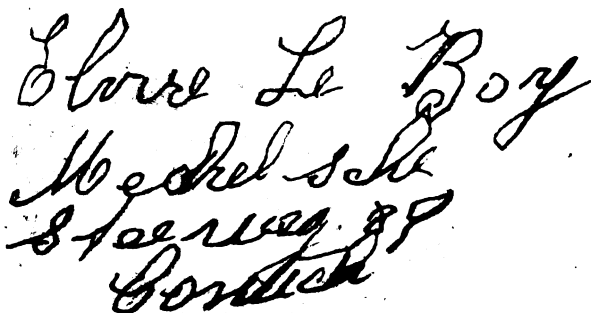 Elvire Le Boy
Mechelsche
Steenweg 39
Contich